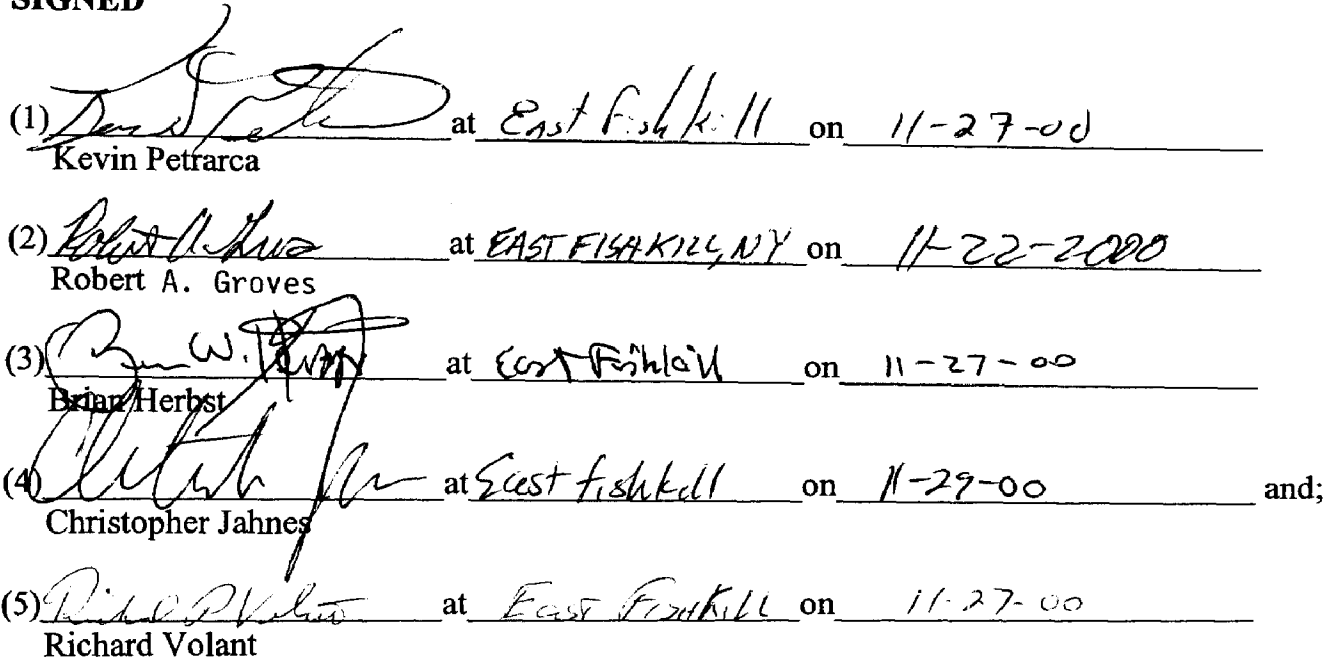 SIGNED
(1) at East Fishkill on 11-27-00
Kevin Petrarca
(2) Robert A. Groves at EAST FISHKILL, NY on 11-22-2000
Robert A. Groves
(3) Brian W. Herbst at East Fishkill on 11-27-00
Brian Herbst
(4) at East Fishkill on 11-29-00 and;
Christopher Jahnes
(5) Richard P Volant at East Fishkill on 11-27-00
Richard Volant